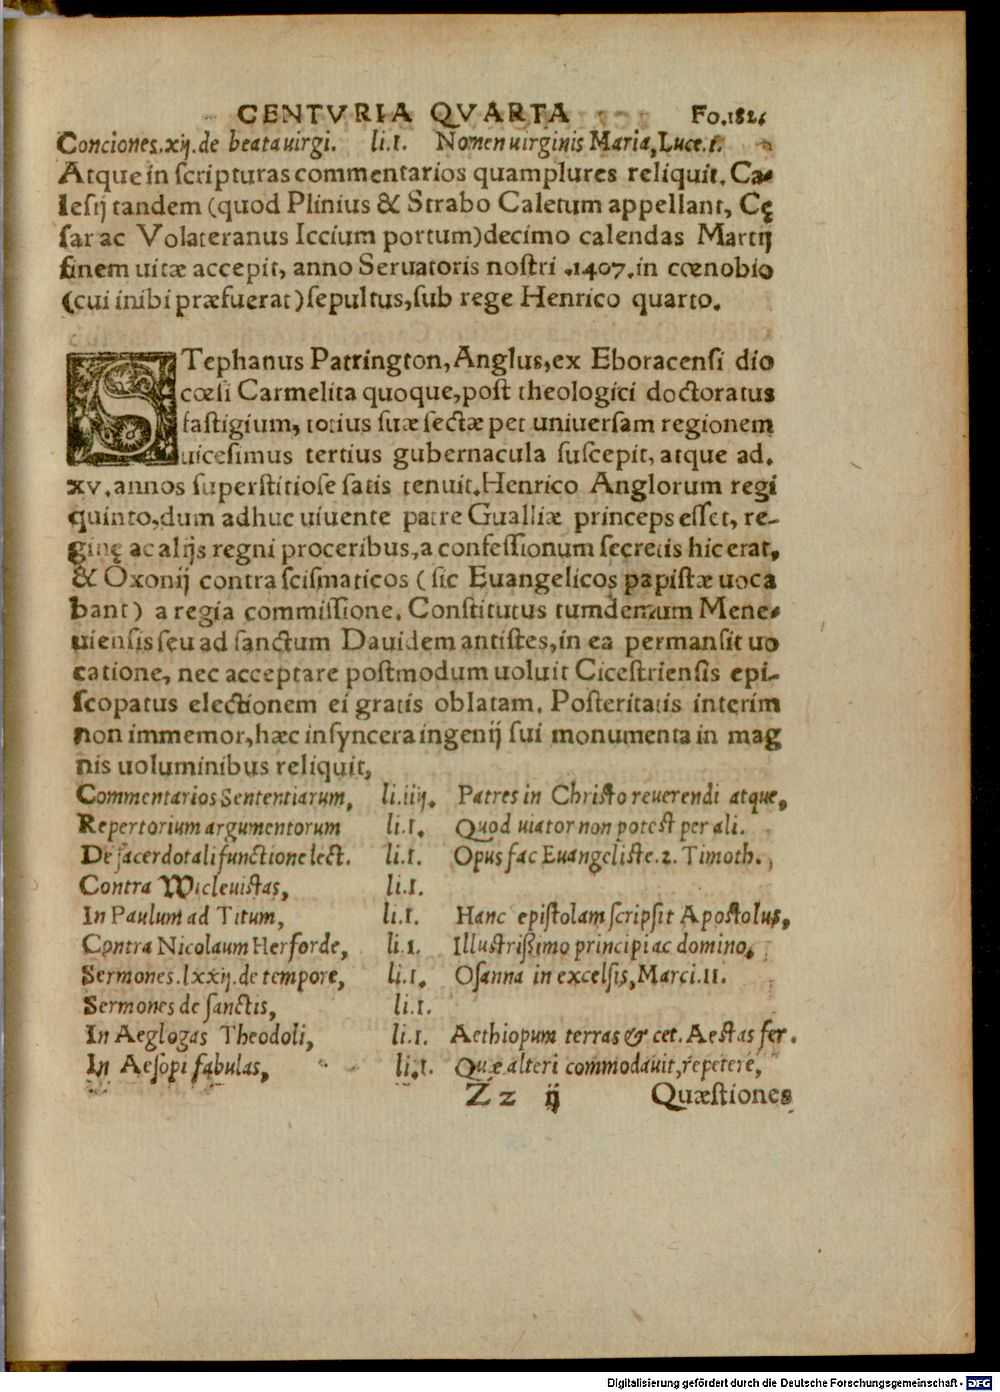 CENTVRIA QVARTA Fo.182.
Conciones.xij.de beata uirgi. li.I. Nomen uirginis Maria, Luce.I.
Atque in scripturas commentarios quamplures reliquit. Ca-
lesij tandem (quod Plinius & Strabo Caletum appellant, Cę
sar ac Volateranus Iccium portum) decimo calendas Martij
finem uitæ accepit, anno Seruatoris nostri .1407. in cœnobio
(cui inibi præfuerat) sepultus, sub rege Henrico quarto.
STephanus Patrington, Anglus, ex Eboracensi dio
cœsi Carmelita quoque, post theologici doctoratus
fastigium, totius suæ sectæ per uniuersam regionem
uicesimus tertius gubernacula suscepit, atque ad.
xv. annos superstitiose satis tenuit. Henrico Anglorum regi
quinto, dum adhuc uiuente patre Gualliæ princeps esset, re-
ginę ac alijs regni proceribus, a confessionum secretis hic erat,
& Oxonij contra scismaticos (sic Euangelicos papistæ uoca
bant) a regia commissione. Constitutus tum demum Mene-
uiensis seu ad sanctum Dauidem antistes, in ea permansit uo
catione, nec acceptare postmodum uoluit Cicestriensis epi-
scopatus electionem ei gratis oblatam. Posteritatis interim
non immemor, hæc insyncera ingenij sui monumenta in mag
nis uoluminibus reliquit,
Commentarios Sententiarum, li.iiij. Patres in Christo reuerendi atque,
Repertorium argumentorum li.I. Quod uiator non potest per ali.
De sacerdotali functione lect. li.I. Opus fac Euangeliste.2. Timoth.,
Contra Wicleuistas, li.I.
In Paulum ad Titum, li.I. Hanc epistolam scripsit Apostolus,
Contra Nicolaum Herforde, li.I. Illustrißimo principi ac domino,
Sermones.lxxij.de tempore, li.I. Osanna in excelsis, Marci.II.
Sermones de sanctis, li.I.
In Aeglogas Theodoli, li.I. Aethiopum terras & cet. Aestas fer.
In Aesopi fabulas, li.I. Quæ alteri commodauit, repetere,
Zz ij Quæstiones
Digitalisierung gefördert durch die Deutsche Forschungsgemeinschaft - DFG